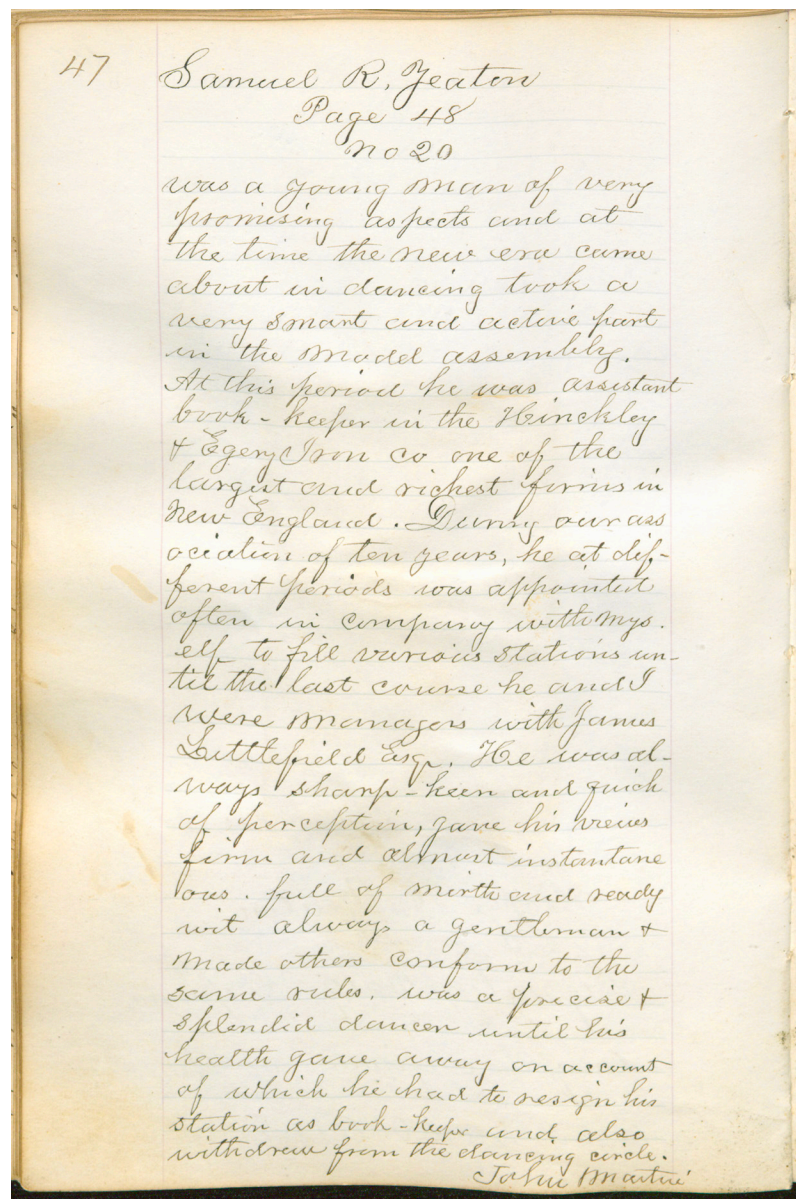 47
Samuel R. Yeaton
Page 48
No 20
was a young man of very
promising aspects and at
the time the new era came
about in dancing took a
very smart and active part
in the model assembly.
At this period he was assistant
book-keeper in the Hinckley
& Egery Iron co one of the
largest and richest firms in
New England. During our ass
ociation of ten years, he at dif-
ferent periods was appointed
often in company with mys.
elf to fill various stations un-
til the last course he and I
were managers with James
Littlefield Esqr. He was al-
ways sharp-keen and quick
of perception, gave his views
firm and almost instantane
ous. full of mirth and ready
wit always a gentleman &
made others conform to the
same rules. was a precise &
splendid dancer until his
health gave away on account
of which he had to resign his
station as book-keeper and also
withdrew from the dancing circle.
John Martin